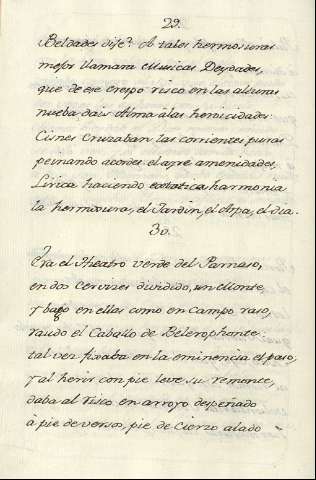 29.
Beldades dije? A tales hermosuras
mejor llamara Musicas Deydades,
que de ese crespo risco en las alturas
nueba dais Alma à las
Cisnes cruzaban las corrientes puras
peinando acordes el ayre amenidades,
Lirica haciendo extatica harmonia
la hermosura, el Jardin, el Arpa, el dia.
30.
Era el Theatro verde del Parnaso,
en dos Cervizes dividido, un Monte,
y bajo en ellas como en campo raso,
raudo el Caballo de Belerophonte:
tal vez fixaba en la eminencia el paso,
y al herir con pie leve su remonte,
daba al risco en arroyo despeñado
à pie de versos, pie de Cierzo alado